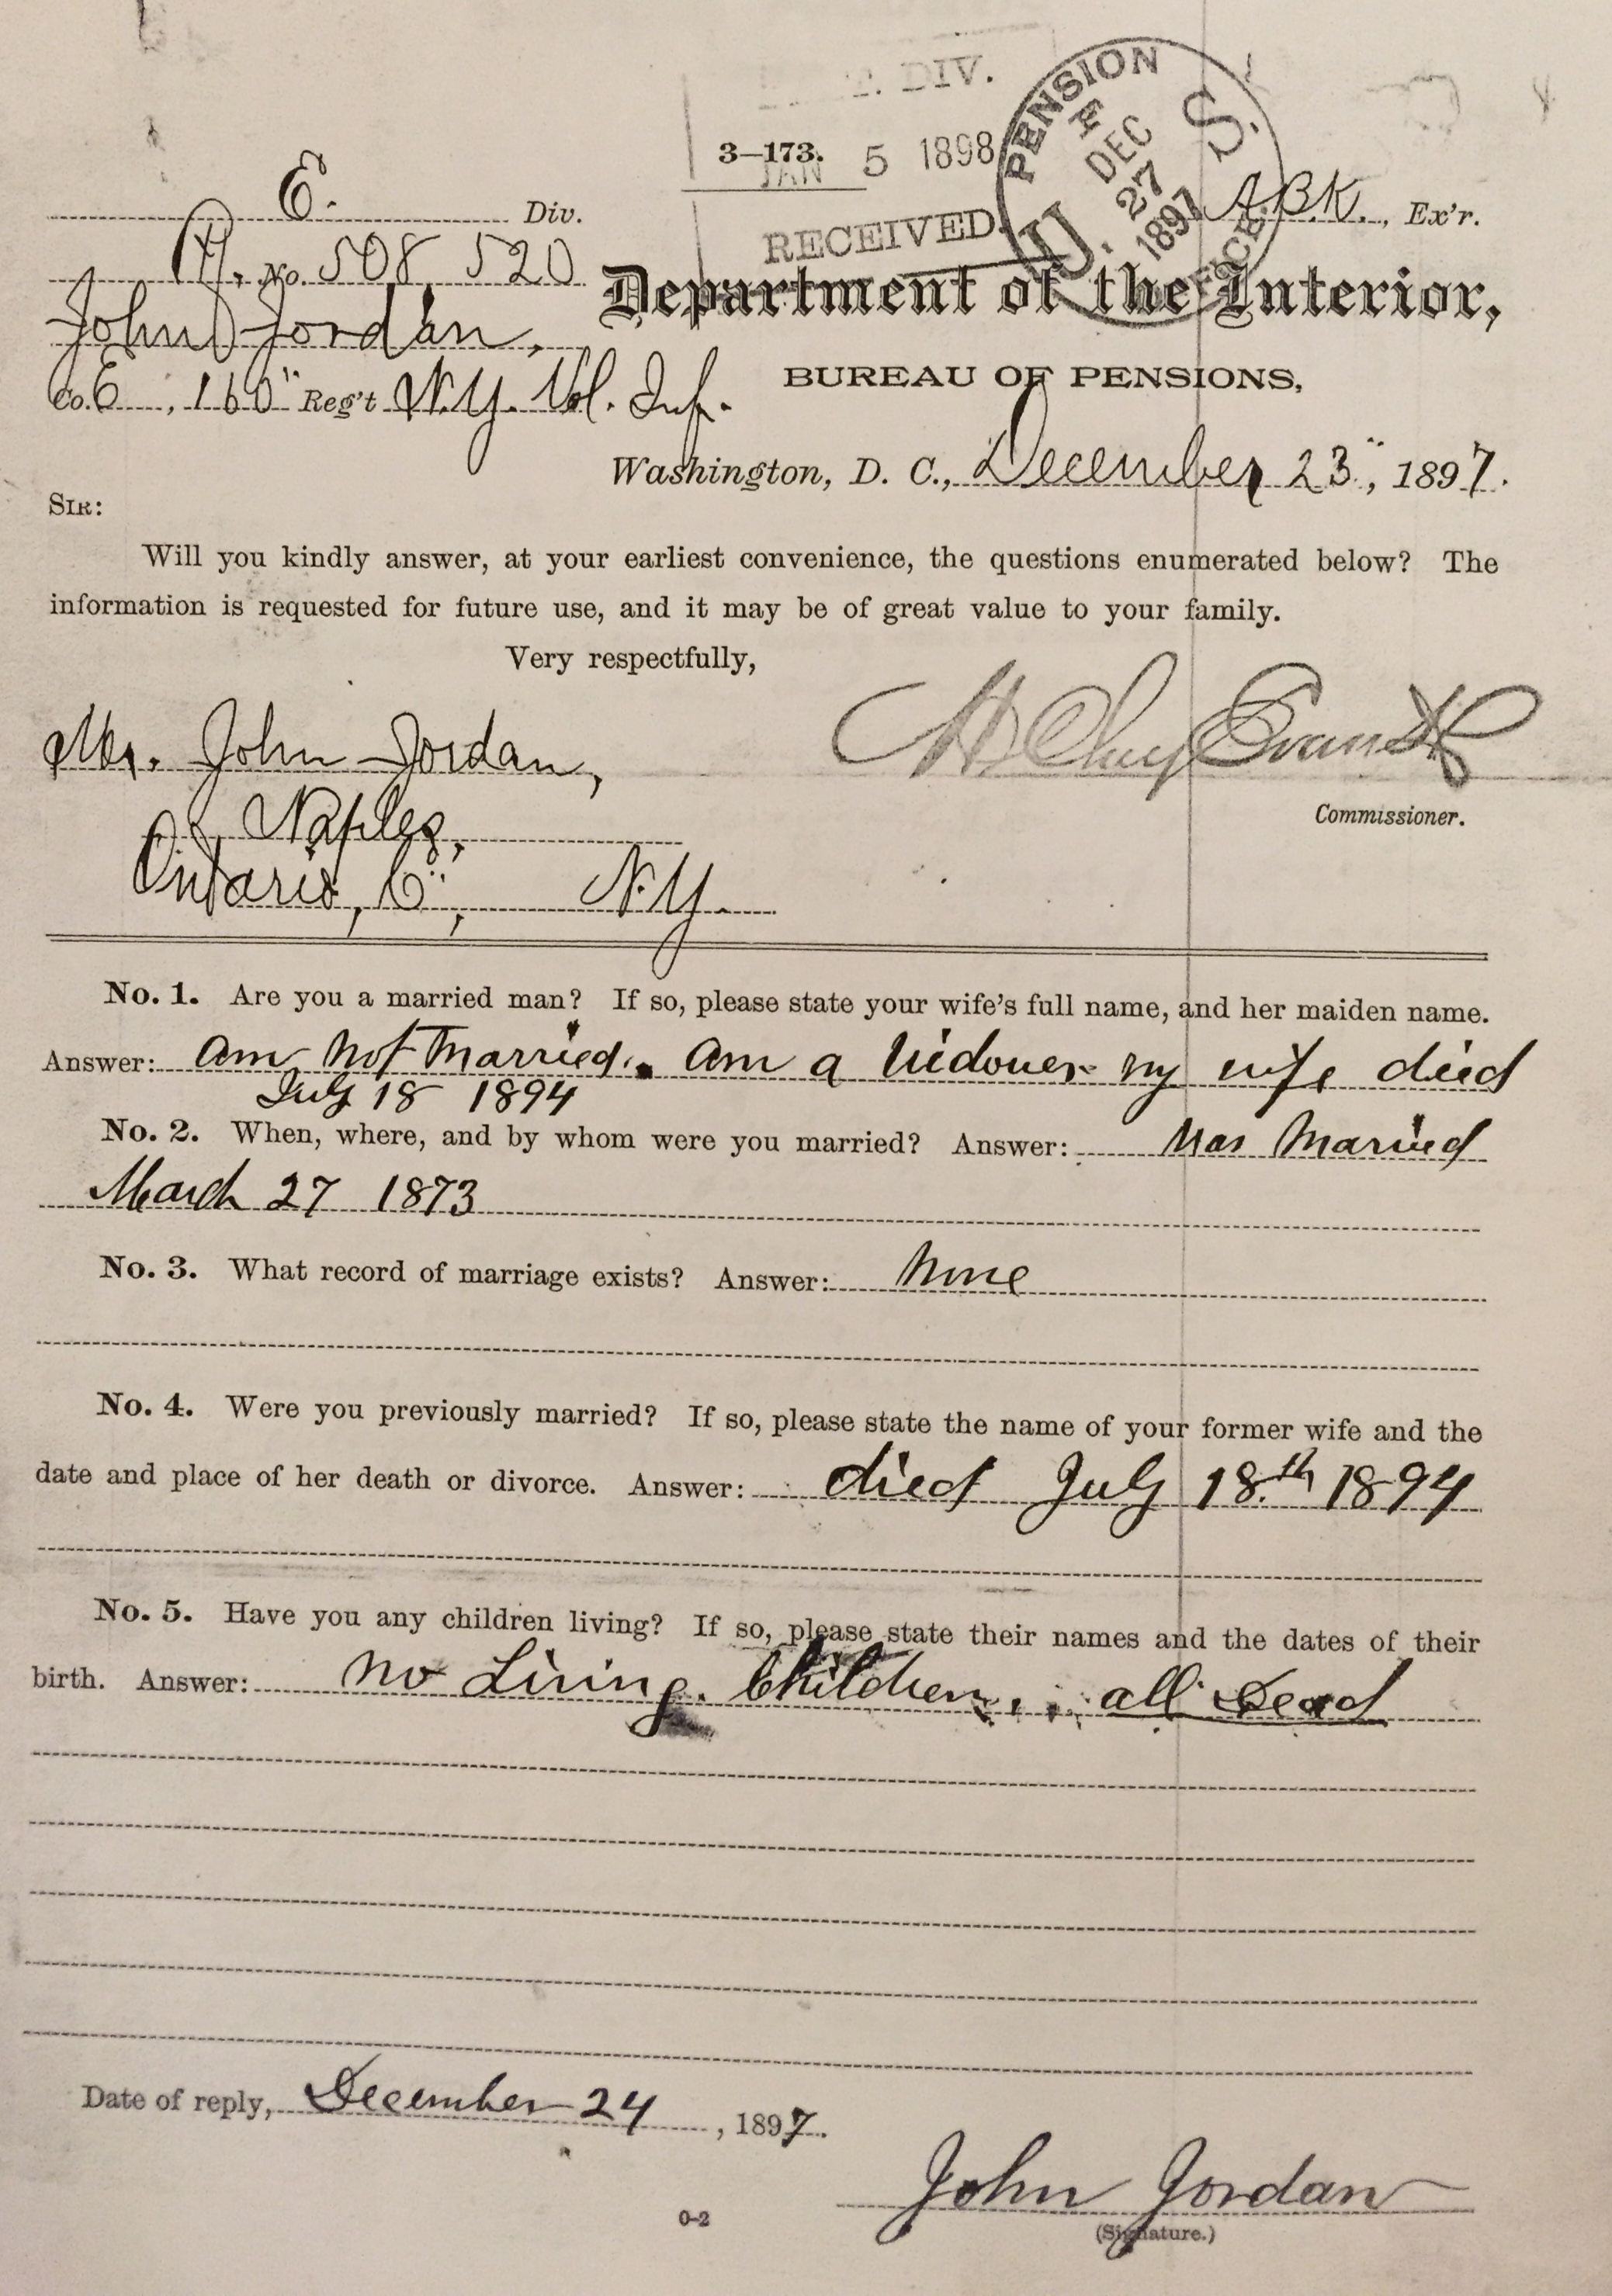 P. DIV.
3—173.
JAN 5 1898
RECEIVED.
PENSION OFFICE
U. S.
DEC
27
1897
E. Div.
A.B.K., Ex'r.
No. 508,520
John Jordan,
Co. E, 160" Reg't N.Y. Vol. Inf.
Department of the Interior,
BUREAU OF PENSIONS,
Washington, D. C., December 23", 1897.
SIR:
Will you kindly answer, at your earliest convenience, the questions enumerated below? The
information is requested for future use, and it may be of great value to your family.
Very respectfully,
H Clay Evans
Commissioner.
Mr. John Jordan,
Naples,
Ontario, Co, N.Y.
No. 1. Are you a married man? If so, please state your wife's full name, and her maiden name.
Answer: am not Married. am a Widower my wife died
July 18 1894
No. 2. When, where, and by whom were you married? Answer: Was Married
March 27 1873
No. 3. What record of marriage exists? Answer: None
No. 4. Were you previously married? If so, please state the name of your former wife and the
date and place of her death or divorce. Answer: died July 18th 1894
No. 5. Have you any children living? If so, please state their names and the dates of their
birth. Answer: no Living. Children. all Dead
Date of reply, December 24, 1897.
John Jordan
(Signature.)
0-2